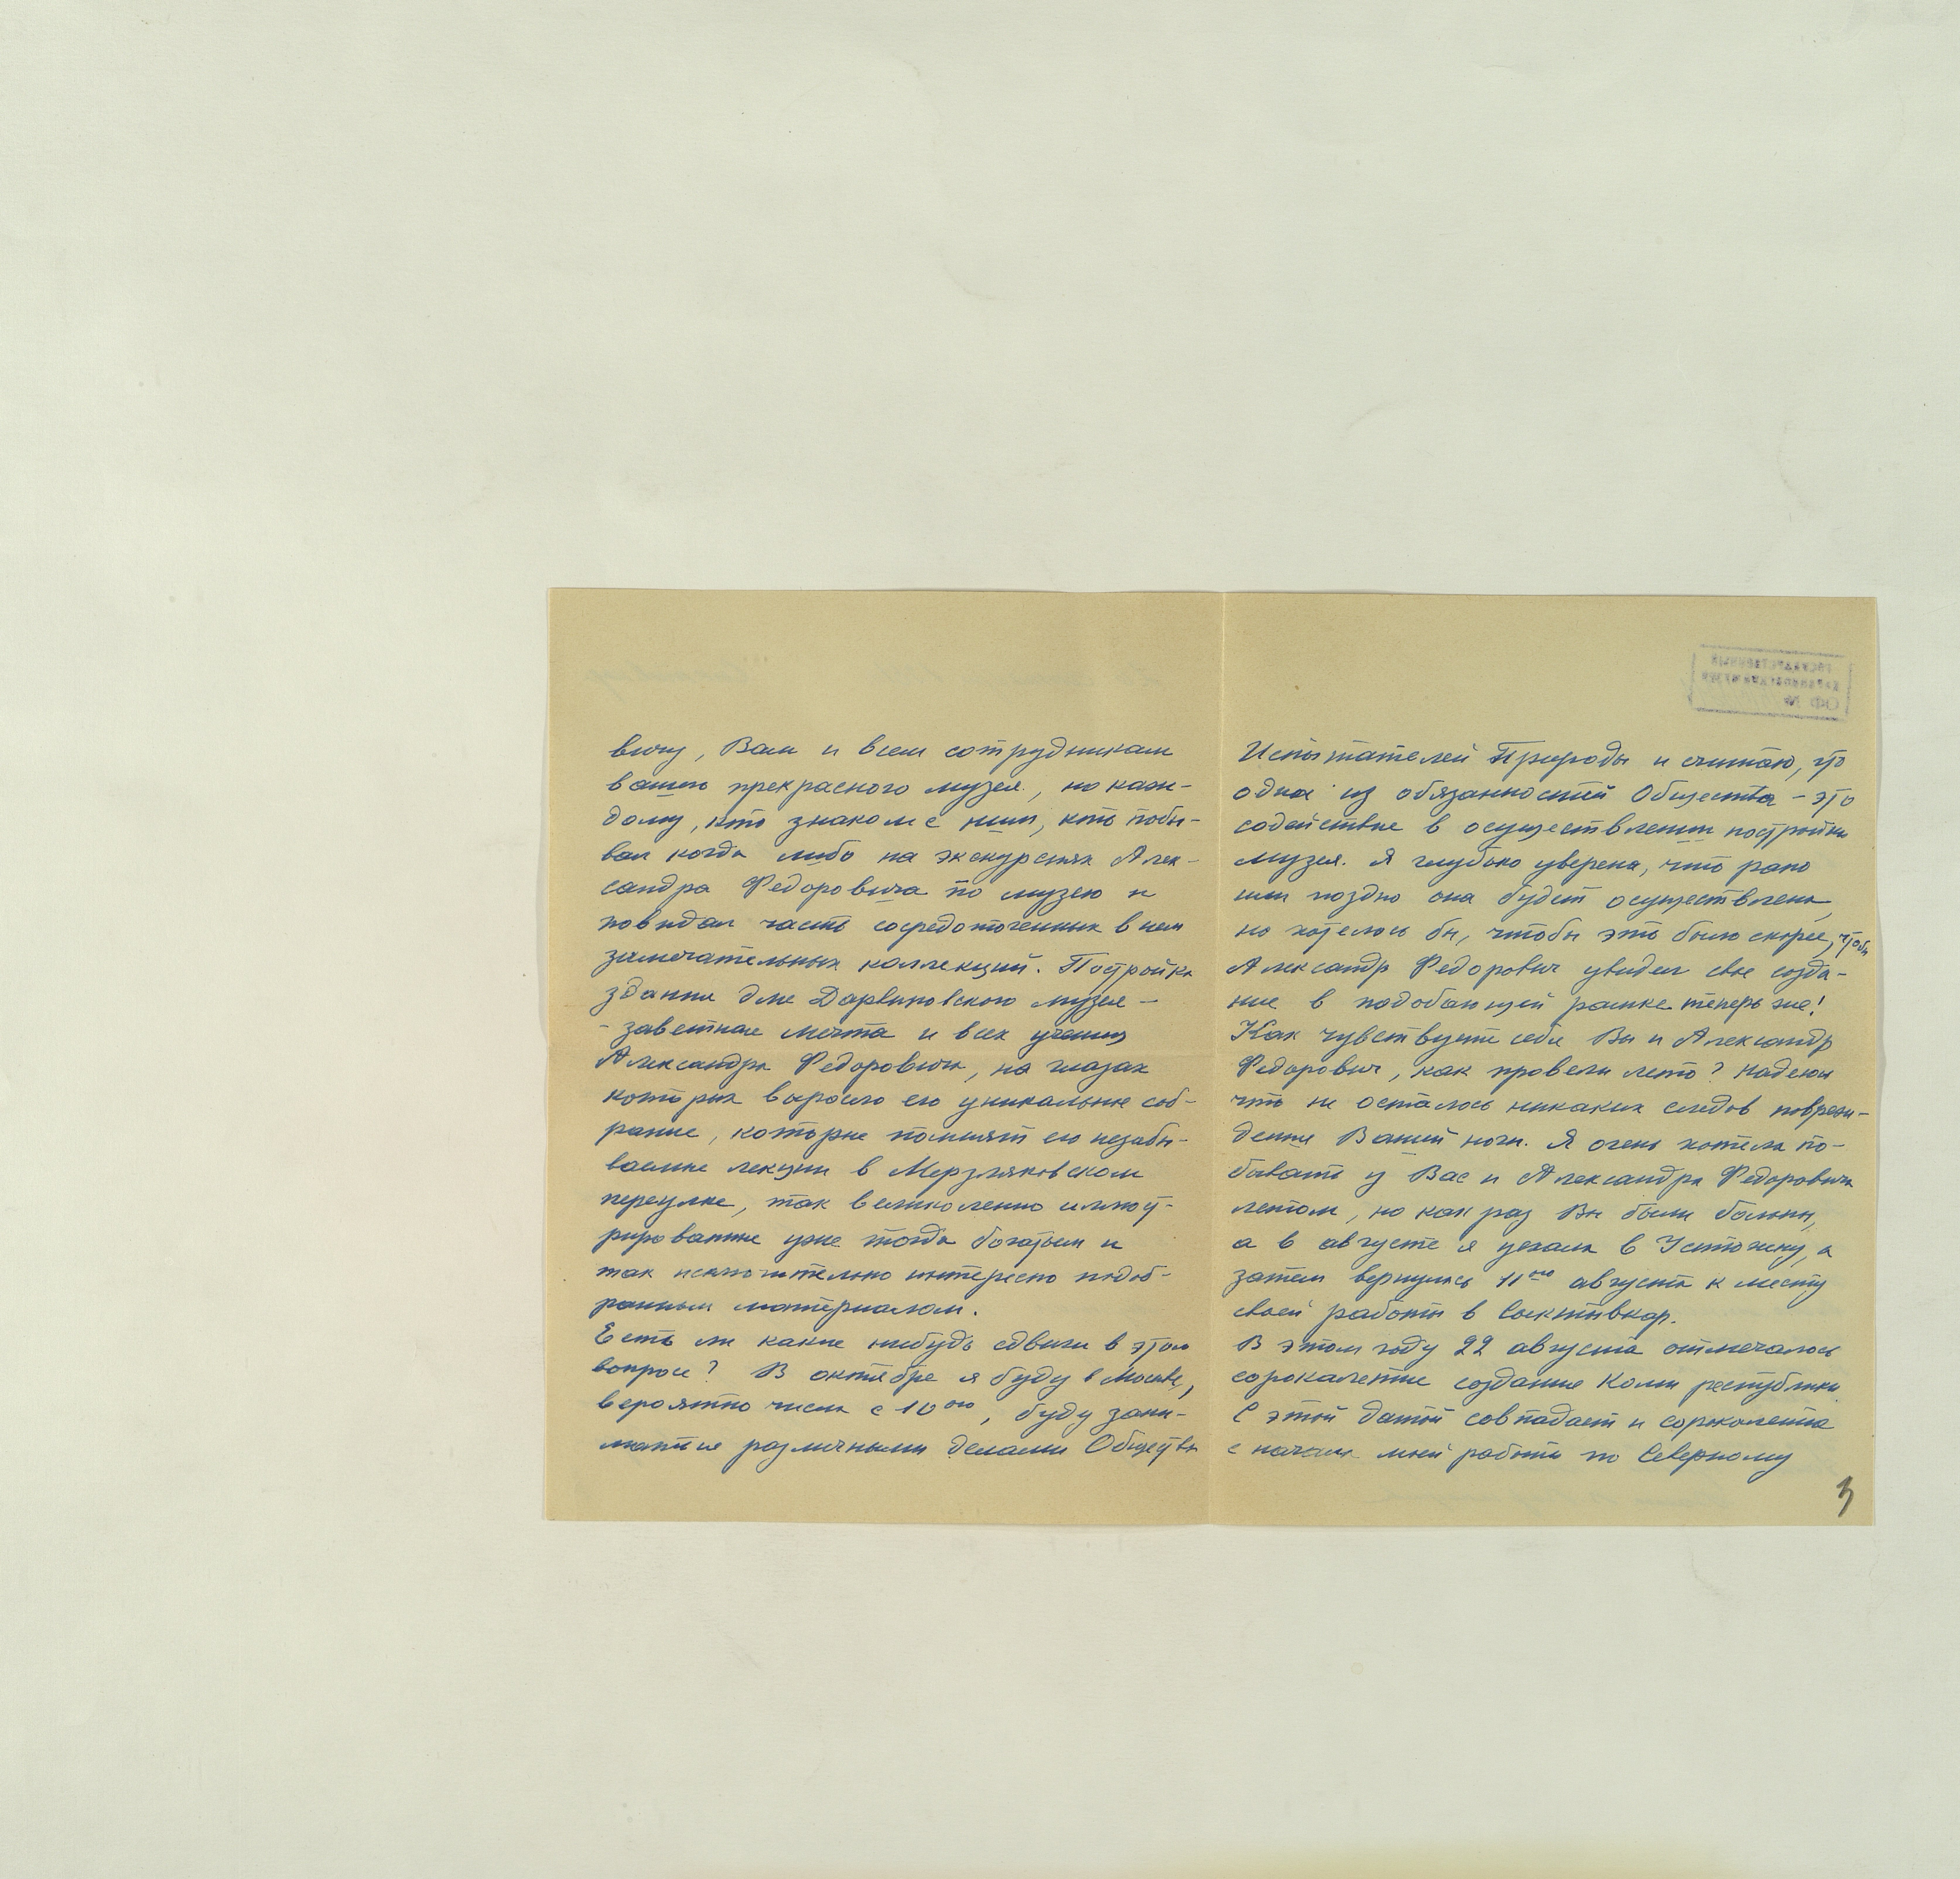 вичу, Вам и всем сотрудникам
вашего прекрасного музея, но каж-
дому, кто знаком с ним, кто побы-
вал когда либо на экскурсиях Алек-
сандра Федоровича по музею и
повидал часть сосредоточенных в нем
замечательных коллекций. Постройка
здания для Дарвиновского музея –
- заветная мечта и всех учениц
Александра Федоровича, на глазах
которых выросло его уникальное соб-
рание, которые помнят его незабы-
ваемые лекции в Мерзляковском
переулке, так великолепно иллюст-
рированные уже тогда богатым и
так исключительно интересно подоб-
ранным материалом.
Есть ли какие нибудь сдвиги в этом
вопросе? В октябре я буду в Москве,
вероятно числа с 10го, буду зани-
маться различными делами Общества
Испытателей Природы и считаю, что
одна из обязанностей Общества – это
содействие в осуществлении постройки
музея. Я глубоко уверена, что рано
или поздно она будет осуществлена,
но хотелось бы, чтобы это было скорее, чтобы
Александр Федорович увидел свое созда-
ние в подобающей рамке теперь же!
Как чувствуете себя Вы и Александр
Федорович, как провели лето? Надеюсь
что не осталось никаких следов повреж-
дения Вашей ноги. Я очень хотела по-
бывать у Вас и Александра Федоровича
летом, но как раз Вы были больны,
а в августе я уехала в Устюжну, а
затем вернулась 11го августа к месту
своей работы в Сыктывкар.
В этом году 22 августа отмечалось
сорокалетие создания Коми республики.
С этой датой совпадает и сорокалетие
с начала моей работы по Северному
3
ГОСУДАРСТВЕННЫЙ
ДАРВИНОВСКИЙ МУЗЕЙ
ОФ №